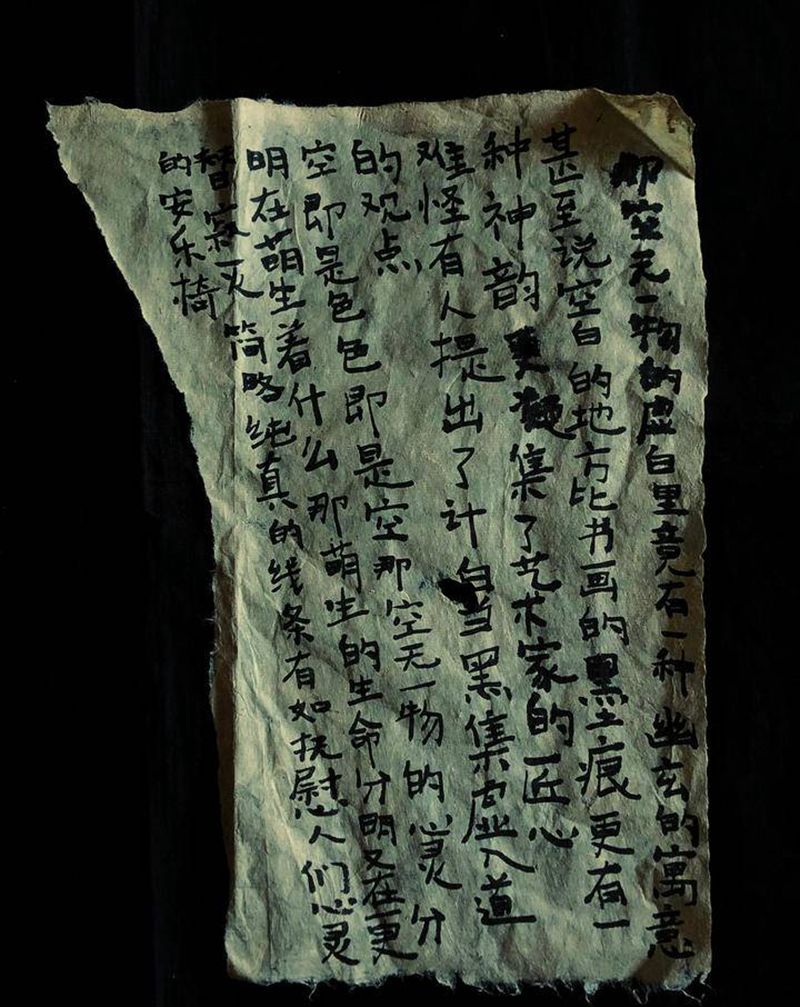 那空无一物的虚白里竟有一种幽玄的寓意
甚至说空白的地方比书画的墨痕更有一
种神韵更凝集了艺术家的匠心
难怪有人提出了计白当黑集虚入道
的观点
空即是色色即是空那空无一物的心灵分
明在萌生着什么那萌生的生命分明又在更
替寂灭简略纯真的线条有如抚慰人们心灵
的安乐椅